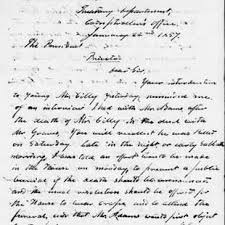 Treasury Department,
Comptroller's Office,
January 22nd 1857.
The President
Private
Dear Sir,
Your introduction
to young Mr Cilley yesterday, reminded me
of an interview I had with Mr Adams after
the death of Mr Cilley in the duel with
Mr Graves. You will recollect he was killed
on Saturday. Late in the night or early Sabbath
morning I an effort would be made
in the House on Monday to prevent a public
of the death should be announced
and the usual resolution should be offered for
the House to wear crape and to attend the
funeral, and that Mr Adams would first object